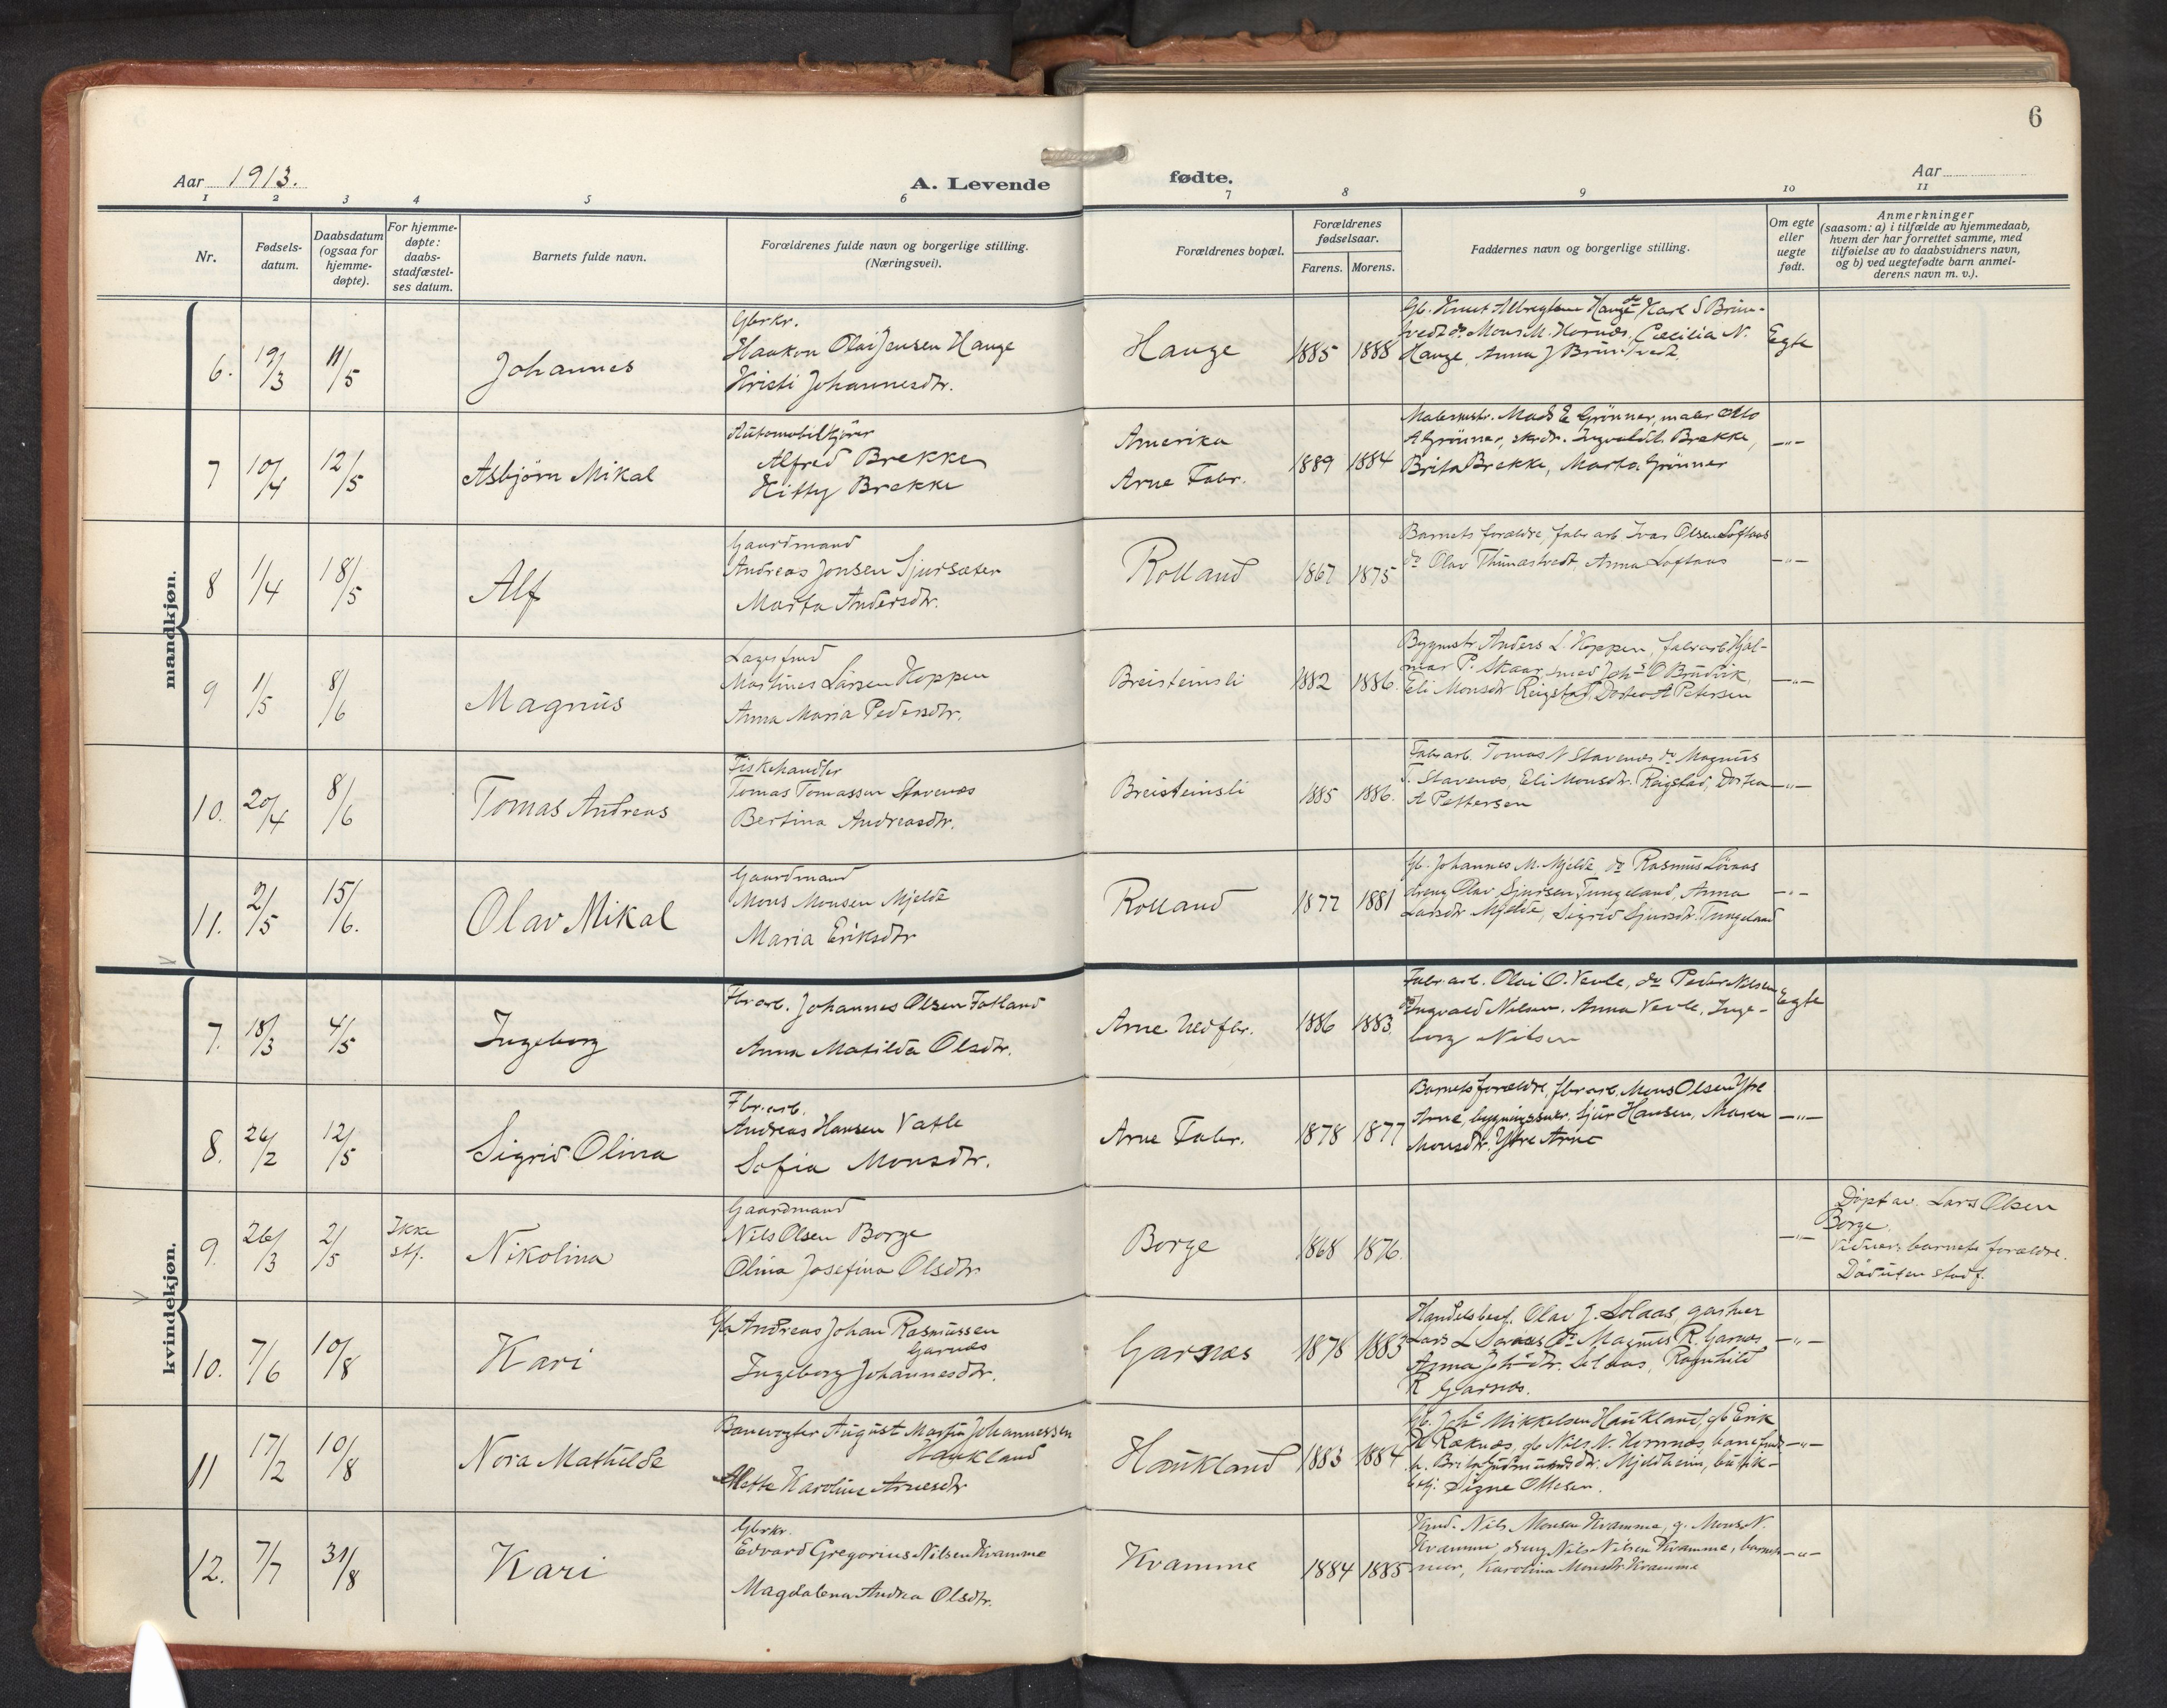 6
Aar 1913.
A. Levende
fødte.
Aar
1 2 3 4 5 6 7 8 9 10 11
Nr.
Fødsels-
datum.
Daabsdatum
(ogsaa for
hjemme-
døpte).
For hjemme-
døpte:
daabs-
stadfæstel-
ses datum.
Barnets fulde navn.
Forældrenes fulde navn og borgerlige stilling.
(Næringsvei).
Forældrenes bopæl.
Forældrenes
fødselsaar.
Farens. Morens.
Faddernes navn og borgerlige stilling.
Om egte
eller
uegte
født.
Anmerkninger
(saasom: a) i tilfælde av hjemmedaab,
hvem der har forrettet samme, med
tilføielse av to daabsvidners navn,
og b) ved uegtefødte barn anmel-
derens navn m. v.).
mandkjøn.
6. 19/3 11/5
Johannes
Gbrkr.
Haakon Olai Jensen Hauge
Kristi Johannesdtr.
Hauge
1885 1888
Gb. Knut Hauge, do Karl S Brun-
tvedt, do Mons M. Hornæs, Cecilia N.
Hauge, Anna J Bruntvedt.
Egte
7 10/4 12/5
Asbjørn Mikal
Automobilkjører
Alfred Brekke
Kitty Brekke
Amerika
Arne Fabr.
1889 1884
Malermstr. Mads E Grønner, maler Otto
A Grønner, Brekke,
Brita Brekke, Marta Grønner
—"—
8 1/4 18/5
Alf
Gaardmand
Andreas Jonsen Sjursæter
Marta Andersdtr.
Rolland
1867 1875
Barnets forældre, fabr arb Ivar Olsen Loftaas
do Olav Thunestvedt, Anna Loftaas
—"—
9 1/5 8/6
Magnus
Martines Larsen Hoppen
Anna Maria Pedersdtr.
Breisteinsli
1882 1886.
Bygmstr Anders L. Hoppen, fabrarb Hjal-
mar P. Skaar, Johs O Brudvik,
Eli Monsdtr Reigstad, Dortea A Petersen
—"—
10. 20/4 8/6
Tomas Andreas
Fiskehandler
Tomas Tomassen Stavenes
Bertina Andreasdtr.
Breisteinsli
1885 1886.
Fabrarb. Tomas N Stavenes, do Magnus
T. Stavenes, Eli Monsdtr. Reigstad, Dortea
A Pettersen
—"—
11. 2/5 15/6.
Olav Mikal
Gaardmand
Mons Monsen Mjelde
Maria Eriksdtr
Rolland
1877 1881
Gb. Johannes M. Mjelde, do Rasmus
dreng Olav Sjursen Tungeland, Anna
Larsdtr Mjelde, Sigrid Sjursdtr. Tungeland
—"—
kvindekjøn.
7. 18/3 4/5
Ingeborg
Fbrarb. Johannes Olsen Fatland
Anna Matilda Olsdtr.
Arne Uldfbr.
1886 1883.
Fabr.arb. Olai O. Vevle, do Peder Nilsen
do Ingvald Nilsen, Anna Vevle, Inge-
borg Nilsen
Egte
8. 26/2 12/5
Sigrid Olina
Fbr.arb.
Andreas Hansen Vatle
Sofia Monsdtr.
Arne Fabr.
1878 1877
Barnets forældre, fbrarb. Mons Olsen Ytre
Arne, bygningssner. Sjur Hansen, Maren
Monsdtr. Ytre Arne
—"—
9. 26/3 2/5
Ikke
stf.
Nikolina
Gaardmand
Nils Olsen Borge
Olina Josefina Olsdtr
Borge
1868 1876.
—"—
Døpt av Lars Olsen
Borge.
Vidner: barnets forældre.
Död uten stadf.
10. 7/6 10/8
Kari
Gb Andreas Johan Rasmussen
Garnæs
Ingeborg Johannesdtr.
Garnæs
1878 1883
Handelsbest. Olav J. Solaas, gartner
Lars L do Magnus R. Garnæs,
Anna Johsdtr. Solaas, Ragnhild
R Garnæs.
—"—
11 17/2 10/8
Nora Mathilde
Banevogter August Martin Johannessen
Haukland
Mette Karoline Arnesdtr
Haukland
1883 1884
Gb. Johs Mikkelsen Haukland, gb Erik
Raknæs, gb Nils N. Hornnæs,
Mjeldheim, butik-
Signe Ottesen.
—"—
12. 7/7 31/8
Kari
Gbrkr.
Edvard Gregorius Nilsen Kvamme
Magdalena Andrea Olsdtr.
Kvamme
1884 1885
Nils Monsen Kvamme, g. Mons N.
Kvamme, dreng Nils Nilsen Kvamme, barnets
mor, Karolina Monsdtr Kvamme
—"—